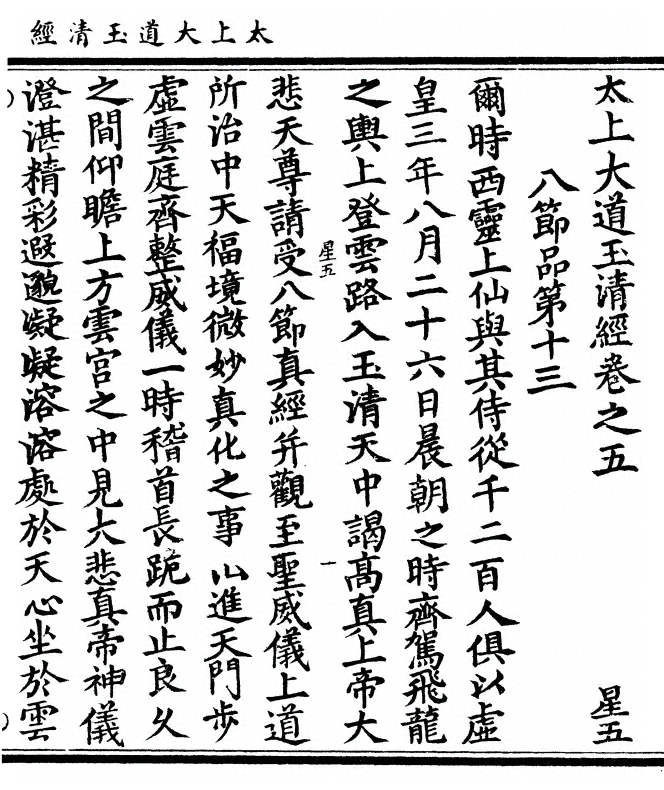 太上大道玉清經
太上大道玉清經卷之五 星五
八節品第十三
爾時西靈上仙與其侍從千二百人俱以虛
皇三年八月二十六日晨朝之時齊駕飛龍
之輿上登雲路入玉清天中謁高真上帝大
星五 一
悲天尊請受八節真經并觀至聖威儀上道
所治中天福境微妙真化之事 進天門步
虛雲庭齊整威儀一時稽首長跪而止良久
之間仰瞻上方雲宮之中見大悲真帝神儀
澄湛精彩遐邈凝凝溶溶處於天心坐於雲